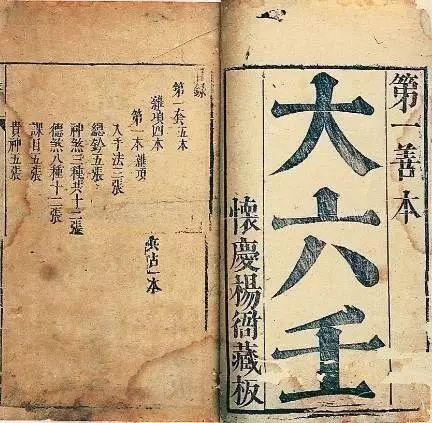 第一善本
大六壬
懷慶楊衙藏板
目錄
第一套五本
雜項四本
第一本 雜項
入手法三張
總鈐五張
神煞三種共十二張
德煞八種十二張
課目五張
貴神五張
兵占一本